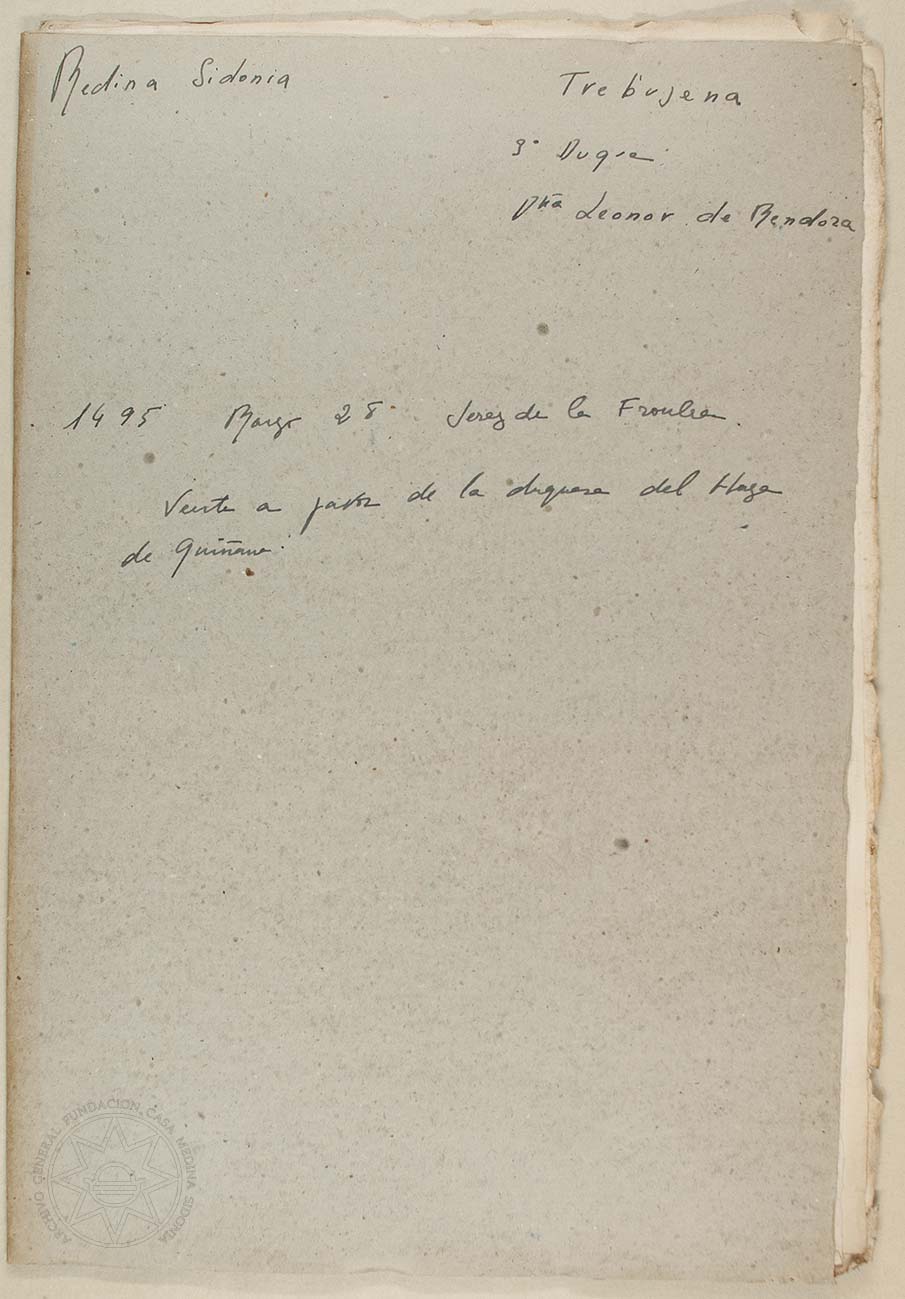 Medina Sidonia
Trebujena
3º Duque
Dña Leonor de Mendoza
1495 Marzo 28 Jerez de la Frontera
Venta a favor de la duquesa del Haza
de
ARCHIVO GENERAL FUNDACION CASA MEDINA SIDONIA